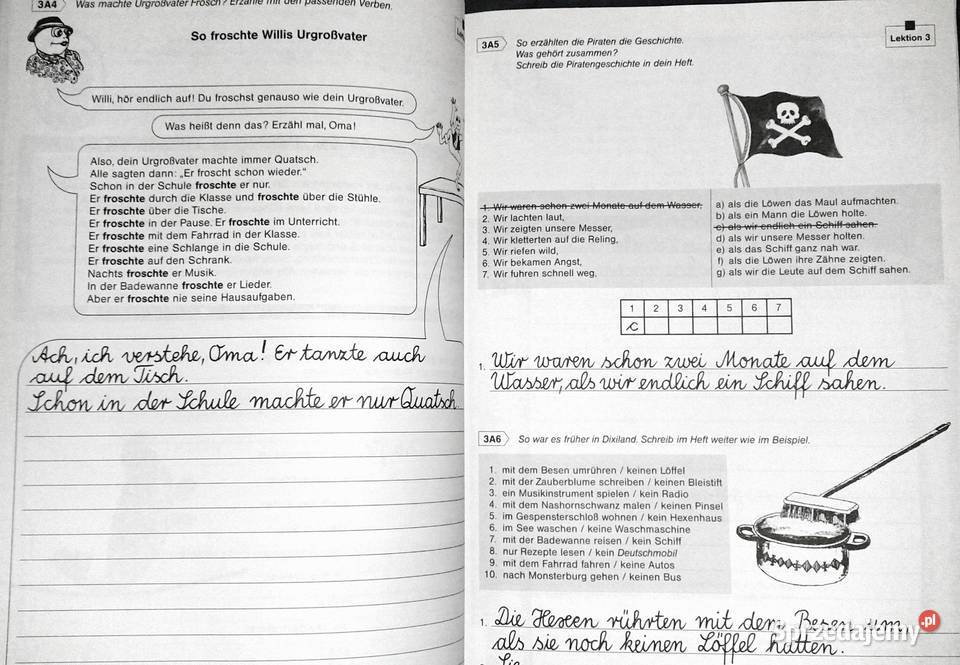 3A4 Was machte Urgroßvater Frosch? Erzähle mit den passenden Verben.
So froschte Willis Urgroßvater
Willi, hör endlich auf! Du froschst genauso wie dein Urgroßvater.
Was heißt denn das? Erzähl mal, Oma!
Also, dein Urgroßvater machte immer Quatsch.
Alle sagten dann: „Er froscht schon wieder.“
Schon in der Schule froschte er nur.
Er froschte durch die Klasse und froschte über die Stühle.
Er froschte über die Tische.
Er froschte in der Pause. Er froschte im Unterricht.
Er froschte mit dem Fahrrad in der Klasse.
Er froschte eine Schlange in die Schule.
Er froschte auf den Schrank.
Nachts froschte er Musik.
In der Badewanne froschte er Lieder.
Aber er froschte nie seine Hausaufgaben.
Ach, ich verstehe, Oma! Er tanzte auch
auf dem Tisch.
Schon in der Schule machte er nur Quatsch.
Lektion 3
3A5 So erzählten die Piraten die Geschichte.
Was gehört zusammen?
Schreib die Piratengeschichte in dein Heft.
1. Wir waren schon zwei Monate auf dem Wasser,
2. Wir lachten laut,
3. Wir zeigten unsere Messer,
4. Wir kletterten auf die Reling,
5. Wir riefen wild,
6. Wir bekamen Angst,
7. Wir fuhren schnell weg,
a) als die Löwen das Maul aufmachten.
b) als ein Mann die Löwen holte.
c) als wir endlich ein Schiff sahen.
d) als wir unsere Messer holten.
e) als das Schiff ganz nah war.
f) als die Löwen ihre Zähne zeigten.
g) als wir die Leute auf dem Schiff sahen.
1 2 3 4 5 6 7
C
1. Wir waren schon zwei Monate auf dem
Wasser, als wir endlich ein Schiff sahen.
3A6 So war es früher in Dixiland. Schreib im Heft weiter wie im Beispiel.
1. mit dem Besen umrühren / keinen Löffel
2. mit der Zauberblume schreiben / keinen Bleistift
3. ein Musikinstrument spielen / kein Radio
4. mit dem Nashornschwanz malen / keinen Pinsel
5. im Gespensterschloß wohnen / kein Hexenhaus
6. im See waschen / keine Waschmaschine
7. mit der Badewanne reisen / kein Schiff
8. nur Rezepte lesen / kein Deutschmobil
9. mit dem Fahrrad fahren / keine Autos
10. nach Monsterburg gehen / keinen Bus
1. Die Hexen rührten mit dem Besen um,
als sie noch keinen Löffel hatten.
Sprzedajemy.pl